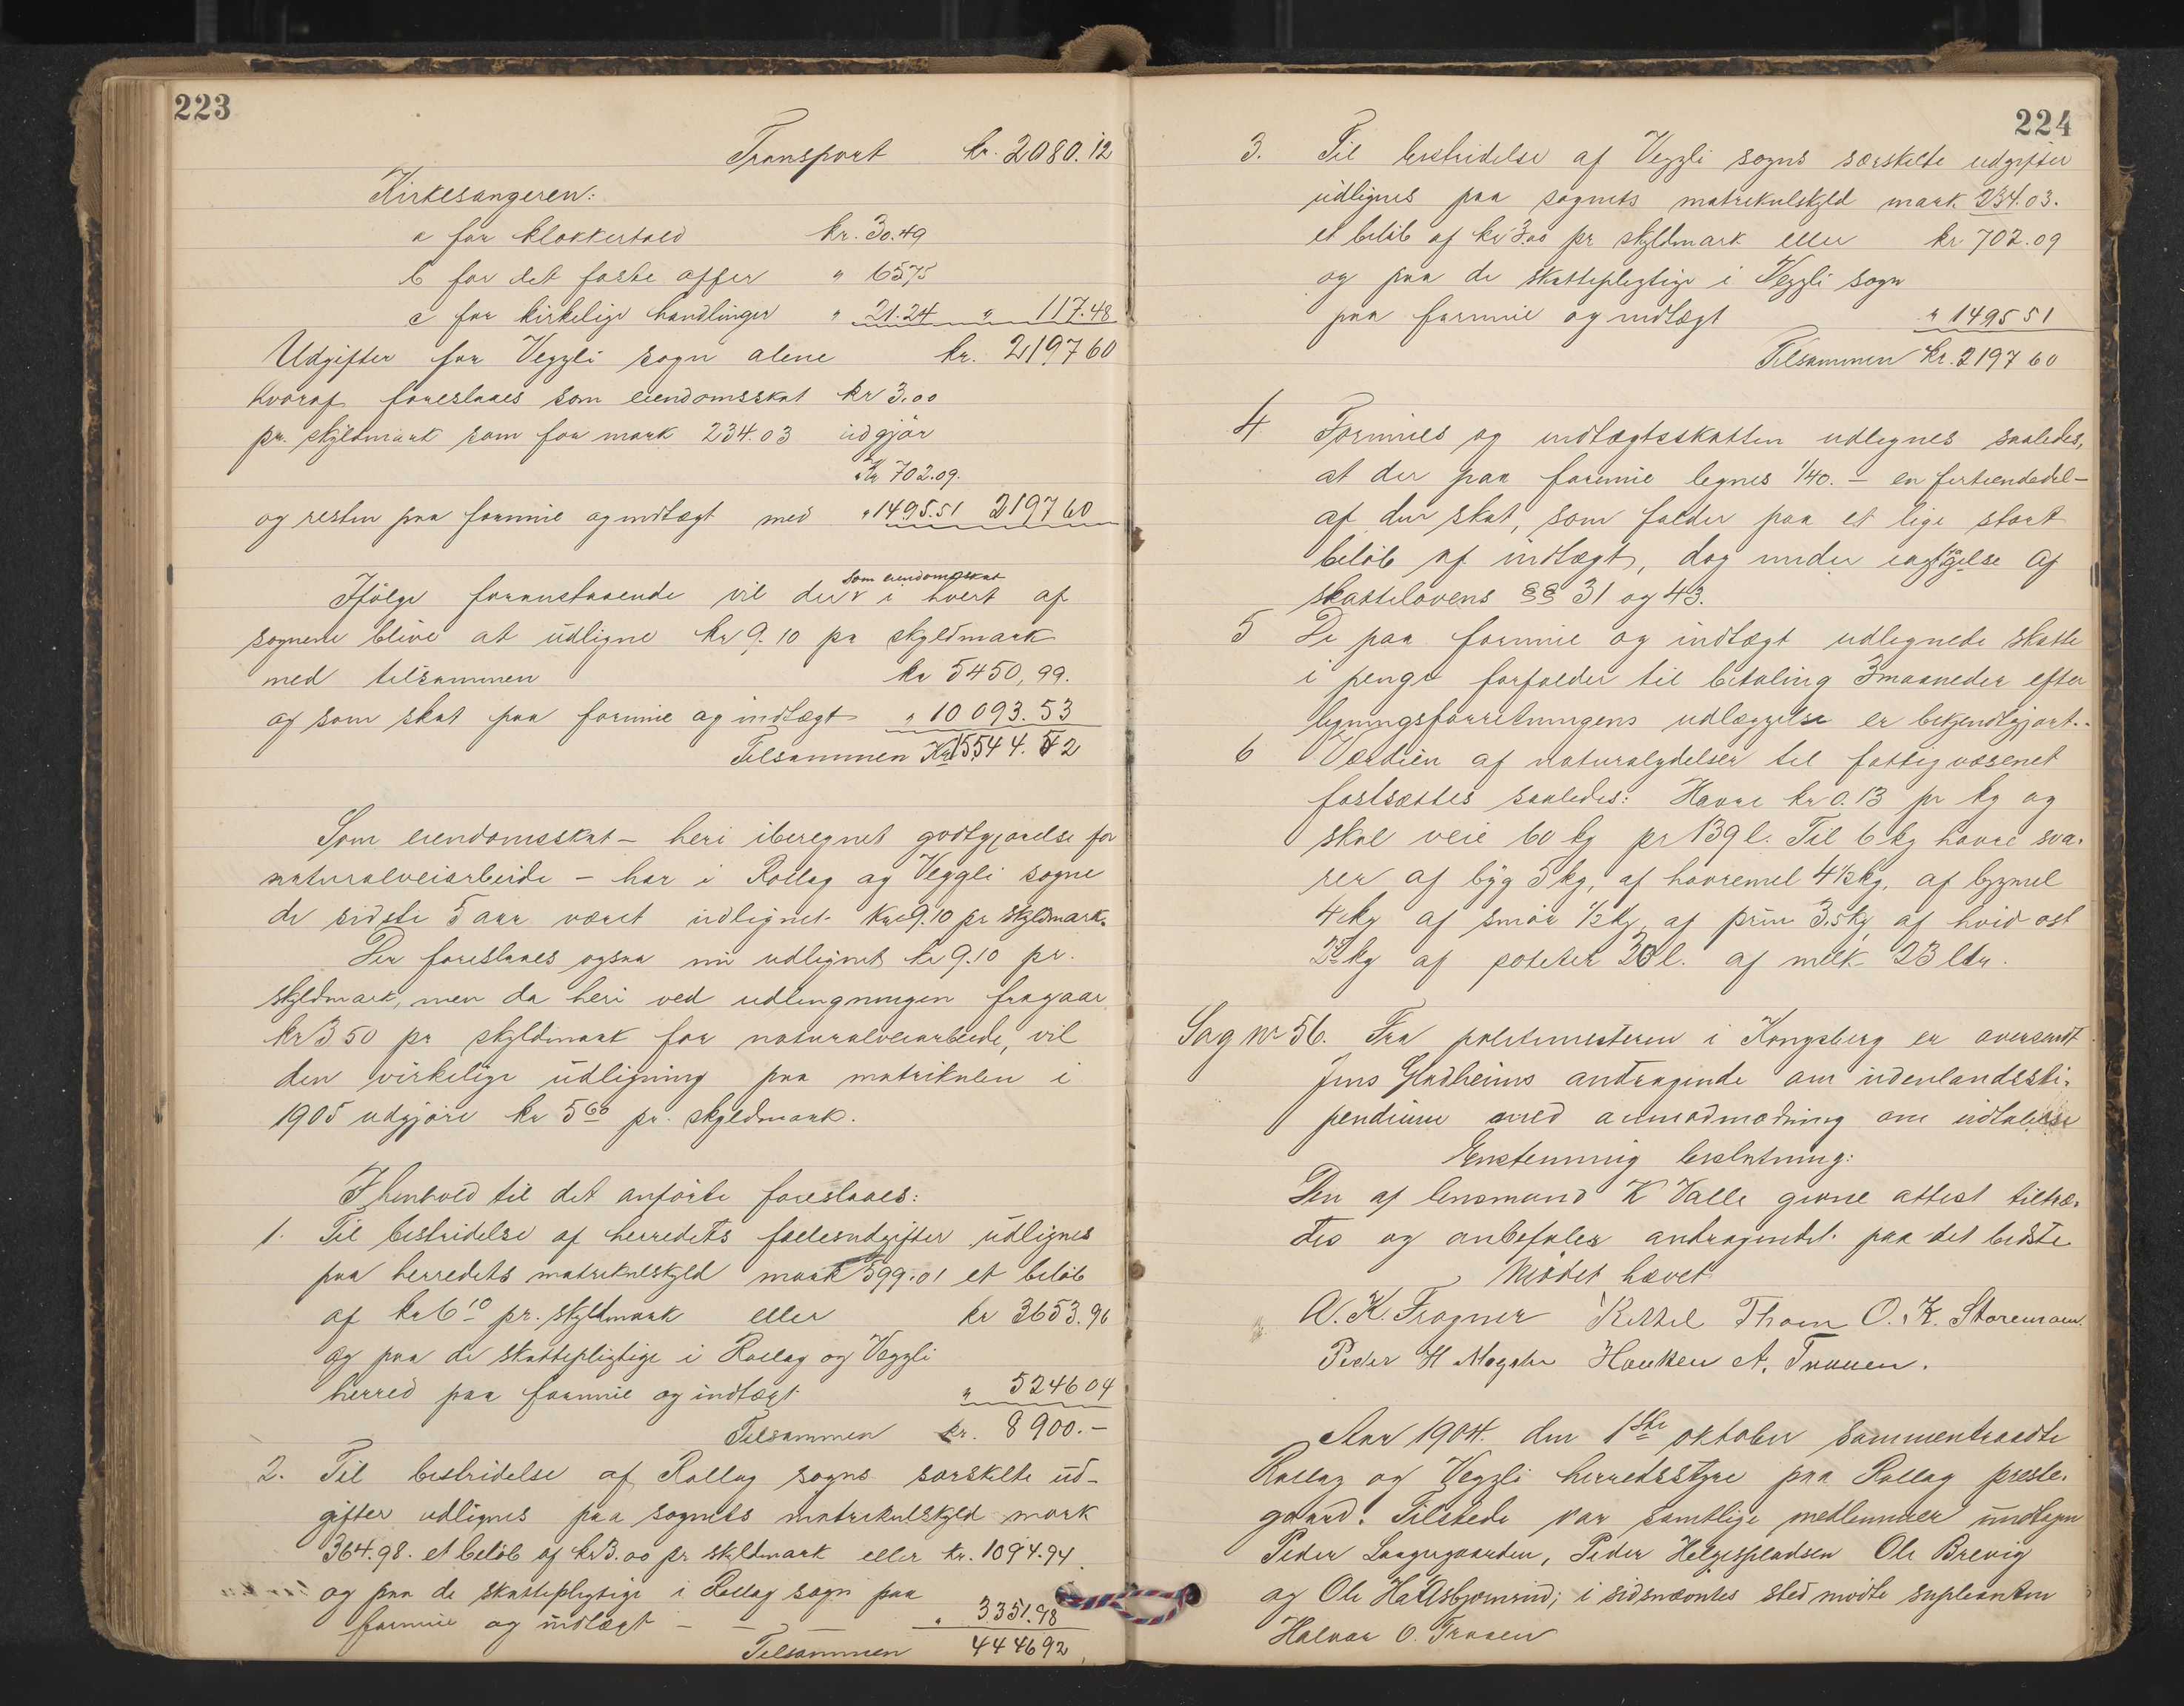 223
Transport kr. 2080.12
Kirkesangeren:
a for klokkertold kr. 30.49
b for det faste offer " 65.75
c for kirkelige handlinger " 21.24 " 117.48
Udgifter for Veggli sogn alene kr. 2197 60
hvoraf foreslaaes som eiendomsskat kr 3.00
pr. skyldmark som for mark 234.03 udgjør
kr 702.09.
og resten paa formue og indtægt med " 1495.51 2197 60
Ifølge foranstaaende vil der som eiendomsskat i hvert af
sognene blive at udligne kr 9.10 pr skyldmark
med tilsammen kr 5450,99.
og som skat paa formue og indtægt " 10 093.53
Tilsammen Kr 15544.52
Som eiendomsskat – heri iberegnet godtgjørelse for
naturalveiarbeide – har i Rollag og Veggli sogne
de sidste 5 aar været udlignet kr 9.10 pr skyldmark.
Der foreslaaes ogsaa nu udlignet kr 9.10 pr.
skyldmark, men da heri ved udlingningen fragaar
kr 3 50 pr skyldmark for naturalveiarbeide, vil
den virkelige udligning paa matrikulen i
1905 udgjøre kr 5 60 pr. skyldmark.
I henhold til det anførte foreslaaes:
1. Til bestridelse af herredets fællesudgifter udlignes
paa herredets matrikulskyld mark 599.01 et beløb
af kr 6 10 pr. skyldmark eller kr 3653.96
og paa de skattepligtige i Rollag og Veggli
herred paa formue og indtægt " 5246 04
Tilsammen kr. 8900.–
2. Til bestridelse af Rollag sogns særskilte ud-
gifter udlignes paa sognets matrikulskyld mark
364.98. et beløb af kr 3.00 pr skyldmark eller kr. 1094.94
og paa de skattepligtige i Rollag sogn paa
formue og indtægt – – – " 3351.98
Tilsammen 4446 92
224
3. Til bestridelse af Veggli sogns særskilte udgifter
udlignes paa sognets matrikulskyld mark 234.03.
et beløb af kr 3.00 pr skyldmark eller kr 702.09
og paa de skattepligtige i Veggli sogn
paa formue og indtægt " 1495 51
Tilsammen kr. 2197 60
4 Formues og indtægtsskatten udlignes saaledes,
at der paa formue lignes 1/40. – en firtiendedel –
af den skat, som falder paa et lige stort
beløb af indtægt, dog under iagttagelse af
skattelovens §§ 31 og 43.
5 De paa formue og indtægt udlignede skatte
i penge forfalder til betaling 3 maaneder efter
ligningsforretningens udlæggelse er bekjendtgjort.
6 Værdien af naturalydelser til fattigvæsenet
fastsættes saaledes: Havre kr 0.13 pr kg og
skal veie 60 kg pr 139 l. Til 6 kg havre sva-
rer af byg 5 kg, af havremel 4 1/2 kg, af bygmel
4 kg af smør 1/2 kg, af prim 3.5 kg, af hvid ost
kg af poteter 20 l. af melk 23 ltr.
Sag nr 56. Fra politimesteren i Kongsberg er oversendt
Jens Gladheims andragende om udenlandssti-
pendium med anmodmodning om udtalelse
Enstemmig beslutning:
Den af lensmand K Valle givne attest tiltræ-
des og anbefales andragendet paa det bedste
Mødet hævet
O. K. Fragner Kittel Thom O. K. Storemoen.
Peder H Mogan Haaken A. Traaen.
Aar 1904. den 1ste oktober sammentraadte
Rollag og Veggli herredsstyre paa Rollag preste-
gaard. Tilstede var samtlige medlemmer undtagen
Peder Laagegaarden, Peder Helgespladsen Ole Brevig
og Ole Hallsbjørnrud; i sidsnævntes sted mødte supleanten
Halvor O. Traaen